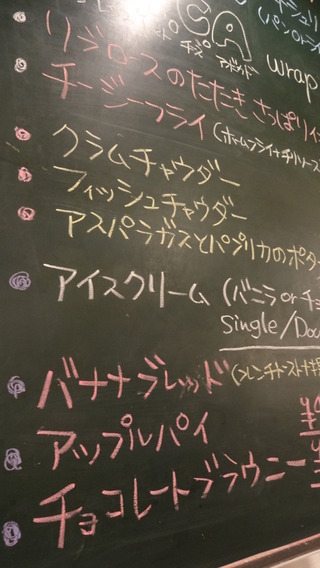 SA wrap
チーズ アボカド
リブロースのたたき さっぱり
チージーフライ (ホームフライ+チリソース
クラムチャウダー
フィッシュチャウダー
アスパラガスとパプリカのポタ
アイスクリーム (バニラ or チョ
Single/Dou
バナナブレッド (フレンチトースト
アップルパイ
チョコレートブラウニー